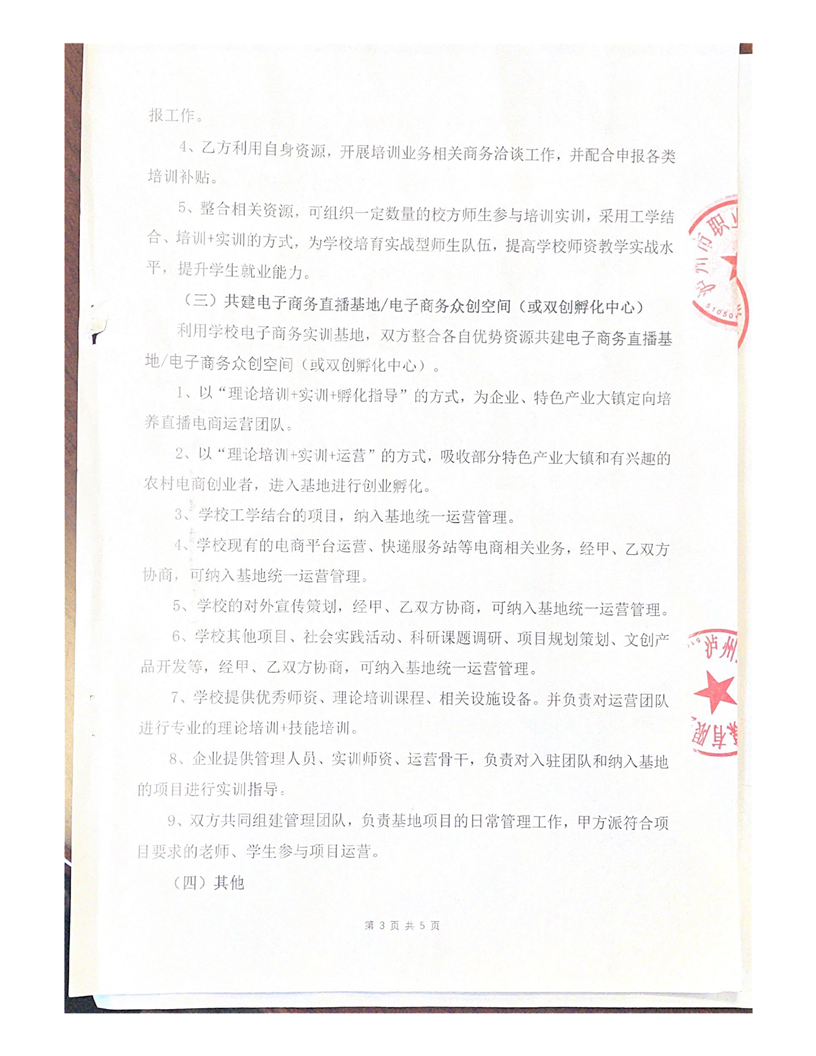 报工作。
4、乙方利用自身资源，开展培训业务相关商务洽谈工作，并配合申报各类
培训补贴。
5、整合相关资源，可组织一定数量的校方师生参与培训实训，采用工学结
合、培训+实训的方式，为学校培育实战型师生队伍，提高学校师资教学实战水
平，提升学生就业能力。
（三）共建电子商务直播基地/电子商务众创空间（或双创孵化中心）
利用学校电子商务实训基地，双方整合各自优势资源共建电子商务直播基
地/电子商务众创空间（或双创孵化中心）。
1、以“理论培训+实训+孵化指导”的方式，为企业、特色产业大镇定向培
养直播电商运营团队。
2、以“理论培训+实训+运营”的方式，吸收部分特色产业大镇和有兴趣的
农村电商创业者，进入基地进行创业孵化。
3、学校工学结合的项目，纳入基地统一运营管理。
4、学校现有的电商平台运营、快递服务站等电商相关业务，经甲、乙双方
协商，可纳入基地统一运营管理。
5、学校的对外宣传策划，经甲、乙双方协商，可纳入基地统一运营管理。
6、学校其他项目、社会实践活动、科研课题调研、项目规划策划、文创产
品开发等，经甲、乙双方协商，可纳入基地统一运营管理。
7、学校提供优秀师资、理论培训课程、相关设施设备。并负责对运营团队
进行专业的理论培训+技能培训。
8、企业提供管理人员、实训师资、运营骨干，负责对入驻团队和纳入基地
的项目进行实训指导。
9、双方共同组建管理团队，负责基地项目的日常管理工作，甲方派符合项
目要求的老师、学生参与项目运营。
（四）其他
第 3 页 共 5 页
泸州市职业
泸州
有限